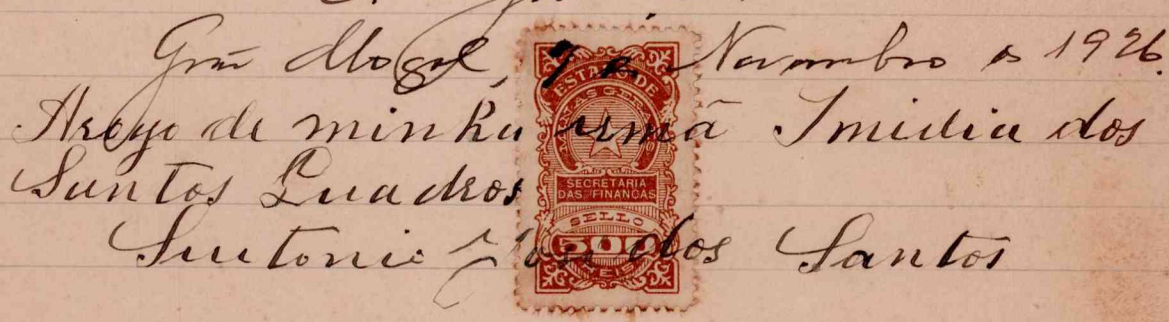 Grão Mogol, 7 de Novembro de 1926.
Arogo de minha irmã Imidia dos
Santos Quadros
Antonio José dos Santos
ESTADO DE
MINAS GERAES
SECRETARIA
DAS FINANÇAS
SELLO
500
REIS